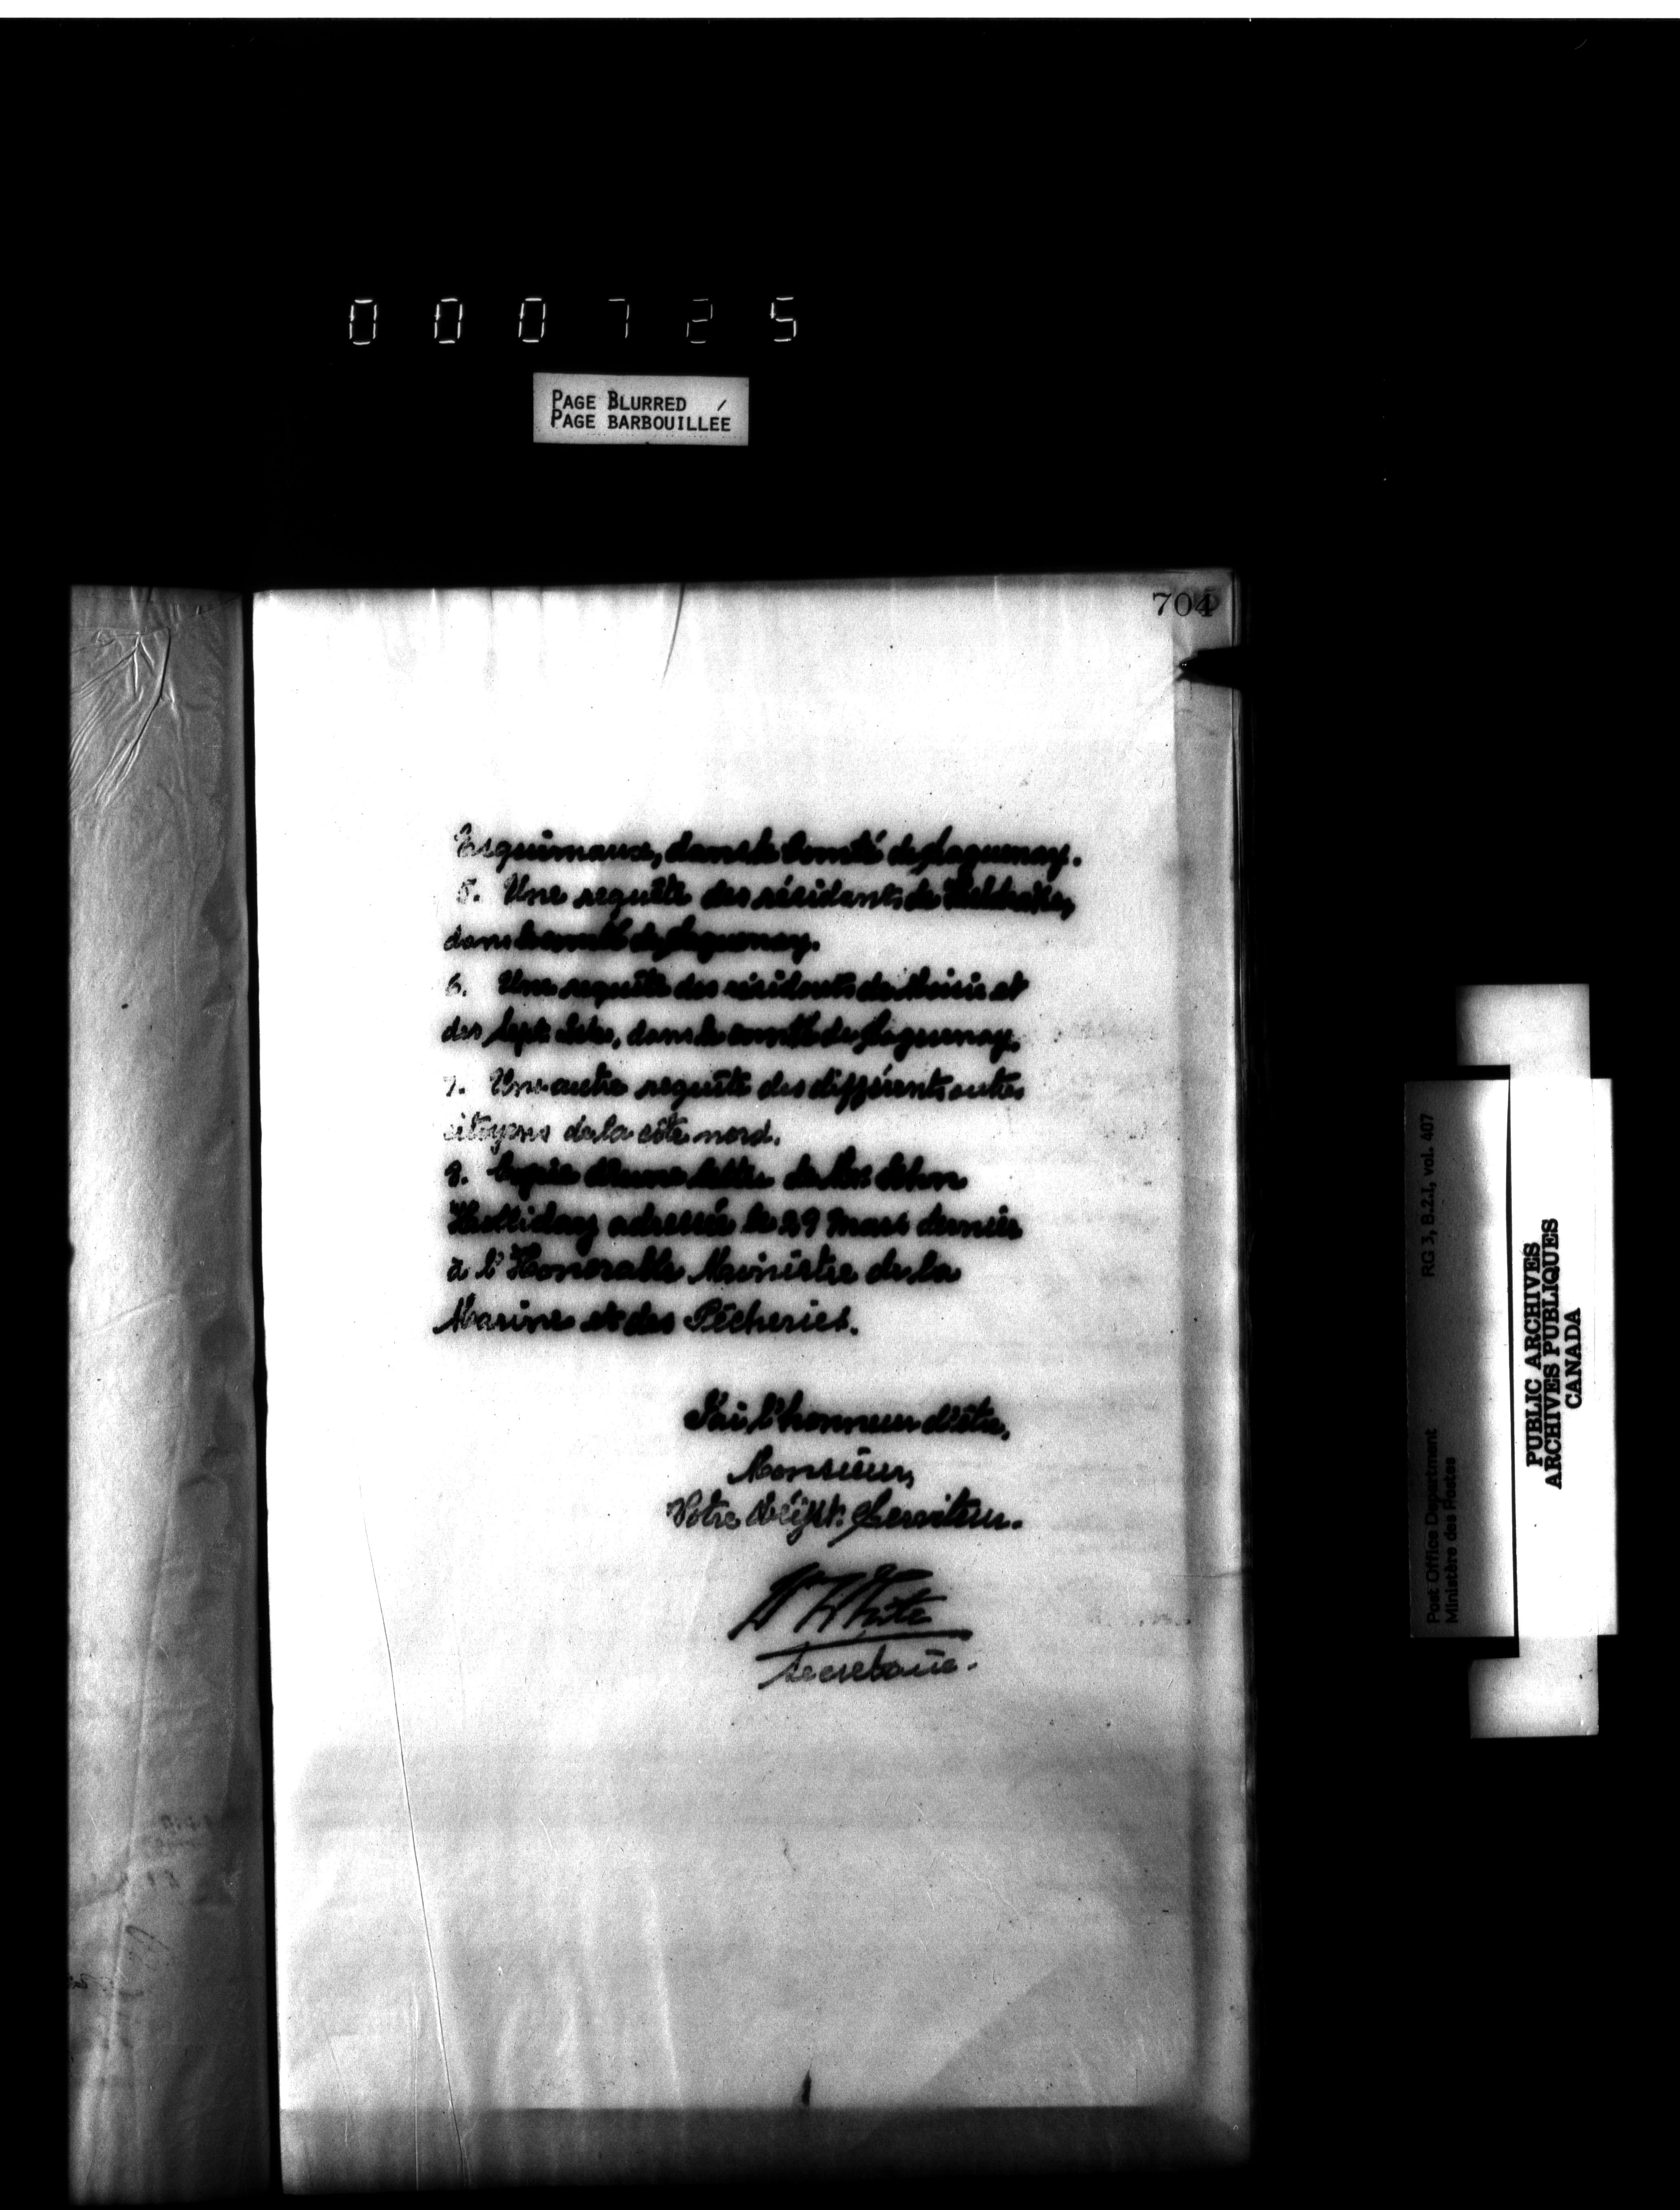 000725
PAGE BLURRED
PAGE BARBOUILLÉE
704
Esquimaux, dans le Comté de Saguenay.
5. Une requête des résidants de Sheldrake,
dans le comté de Saguenay.
6. Une requête des résidants de Moisie et
des Sept Isles, dans le comté de Saguenay.
7. Une autre requête des différents autres
citoyens de la côte nord.
8. Copie d'une lettre de
Halliday adressée le 29 mars dernier
à l'Honorable Ministre de la
Marine et des Pêcheries.
J'ai l'honneur d'être,
Monsieur,
Votre obéisst. Serviteur.
White
Secretaire.
Post Office Department RG 3, B.2.1, vol. 407
Ministère des Postes
PUBLIC ARCHIVES
ARCHIVES PUBLIQUES
CANADA